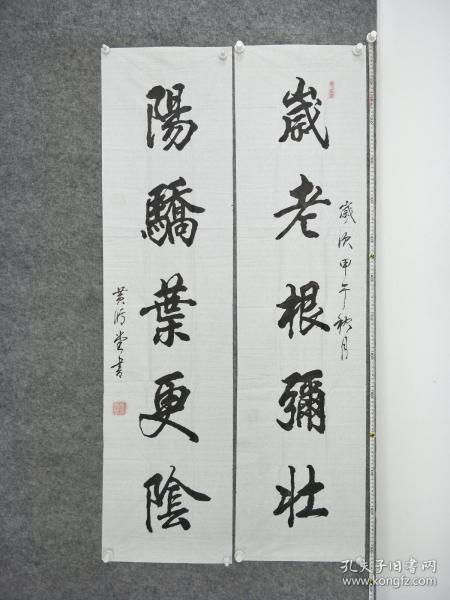 歲老根彌壯
歲次甲午秋月
陽驕葉更陰
黄沛堂書
孔夫子旧书网